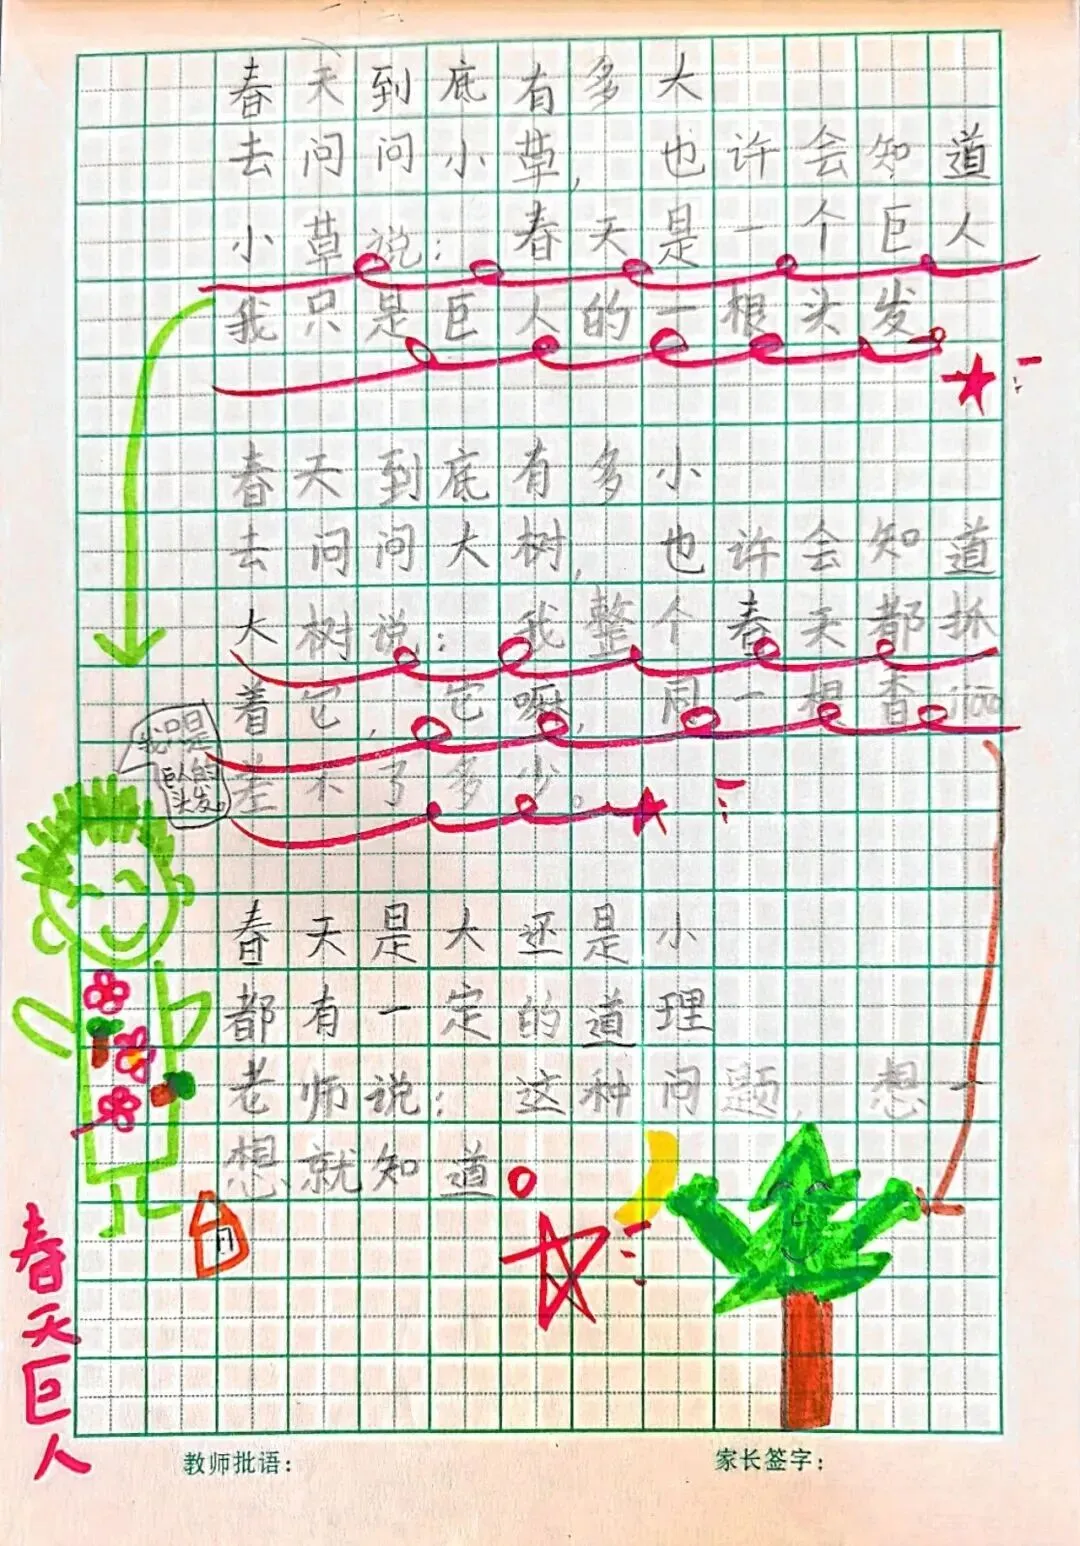 春天到底有多大
去问问小草，也许会知道
小草说：春天是一个巨人
我只是巨人的一根头发
春天到底有多小
去问问大树，也许会知道
大树说：我整个春天都抓
着它，它嘛，同一根香
差不了多少。
春天是大还是小
都有一定的道理
老师说：这种问题，想一
想就知道。
我只是
巨人的
头发。
春天巨人
教师批语：
家长签字：